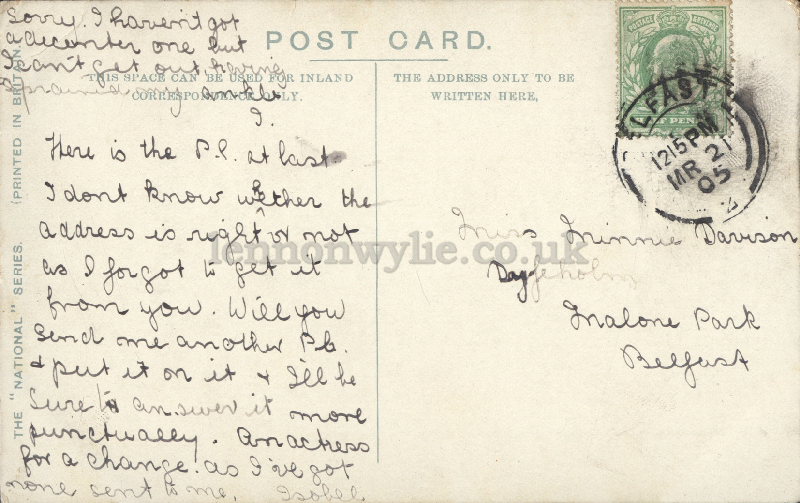 Sorry I haven't got
a decenter one but
I can't get out having
sprained my ankle
I.
POST CARD.
THIS SPACE CAN BE USED FOR INLAND
CORRESPONDENCE ONLY.
THE ADDRESS ONLY TO BE
WRITTEN HERE,
THE "NATIONAL" SERIES. (PRINTED IN BRITAIN.
Here is the P.C. at last
I dont know wether the
h
address is right or not
as I forgot to get it
from you. Will you
send me another P.C.
& put it on it & I'll be
sure to answer it more
punctually. An actress
for a change. as I've got
none sent to me. Isobel
LFAST
1215PM
MR 21
05
Miss Minnie Davison
Malone Park
Belfast
lennonwylie.co.uk